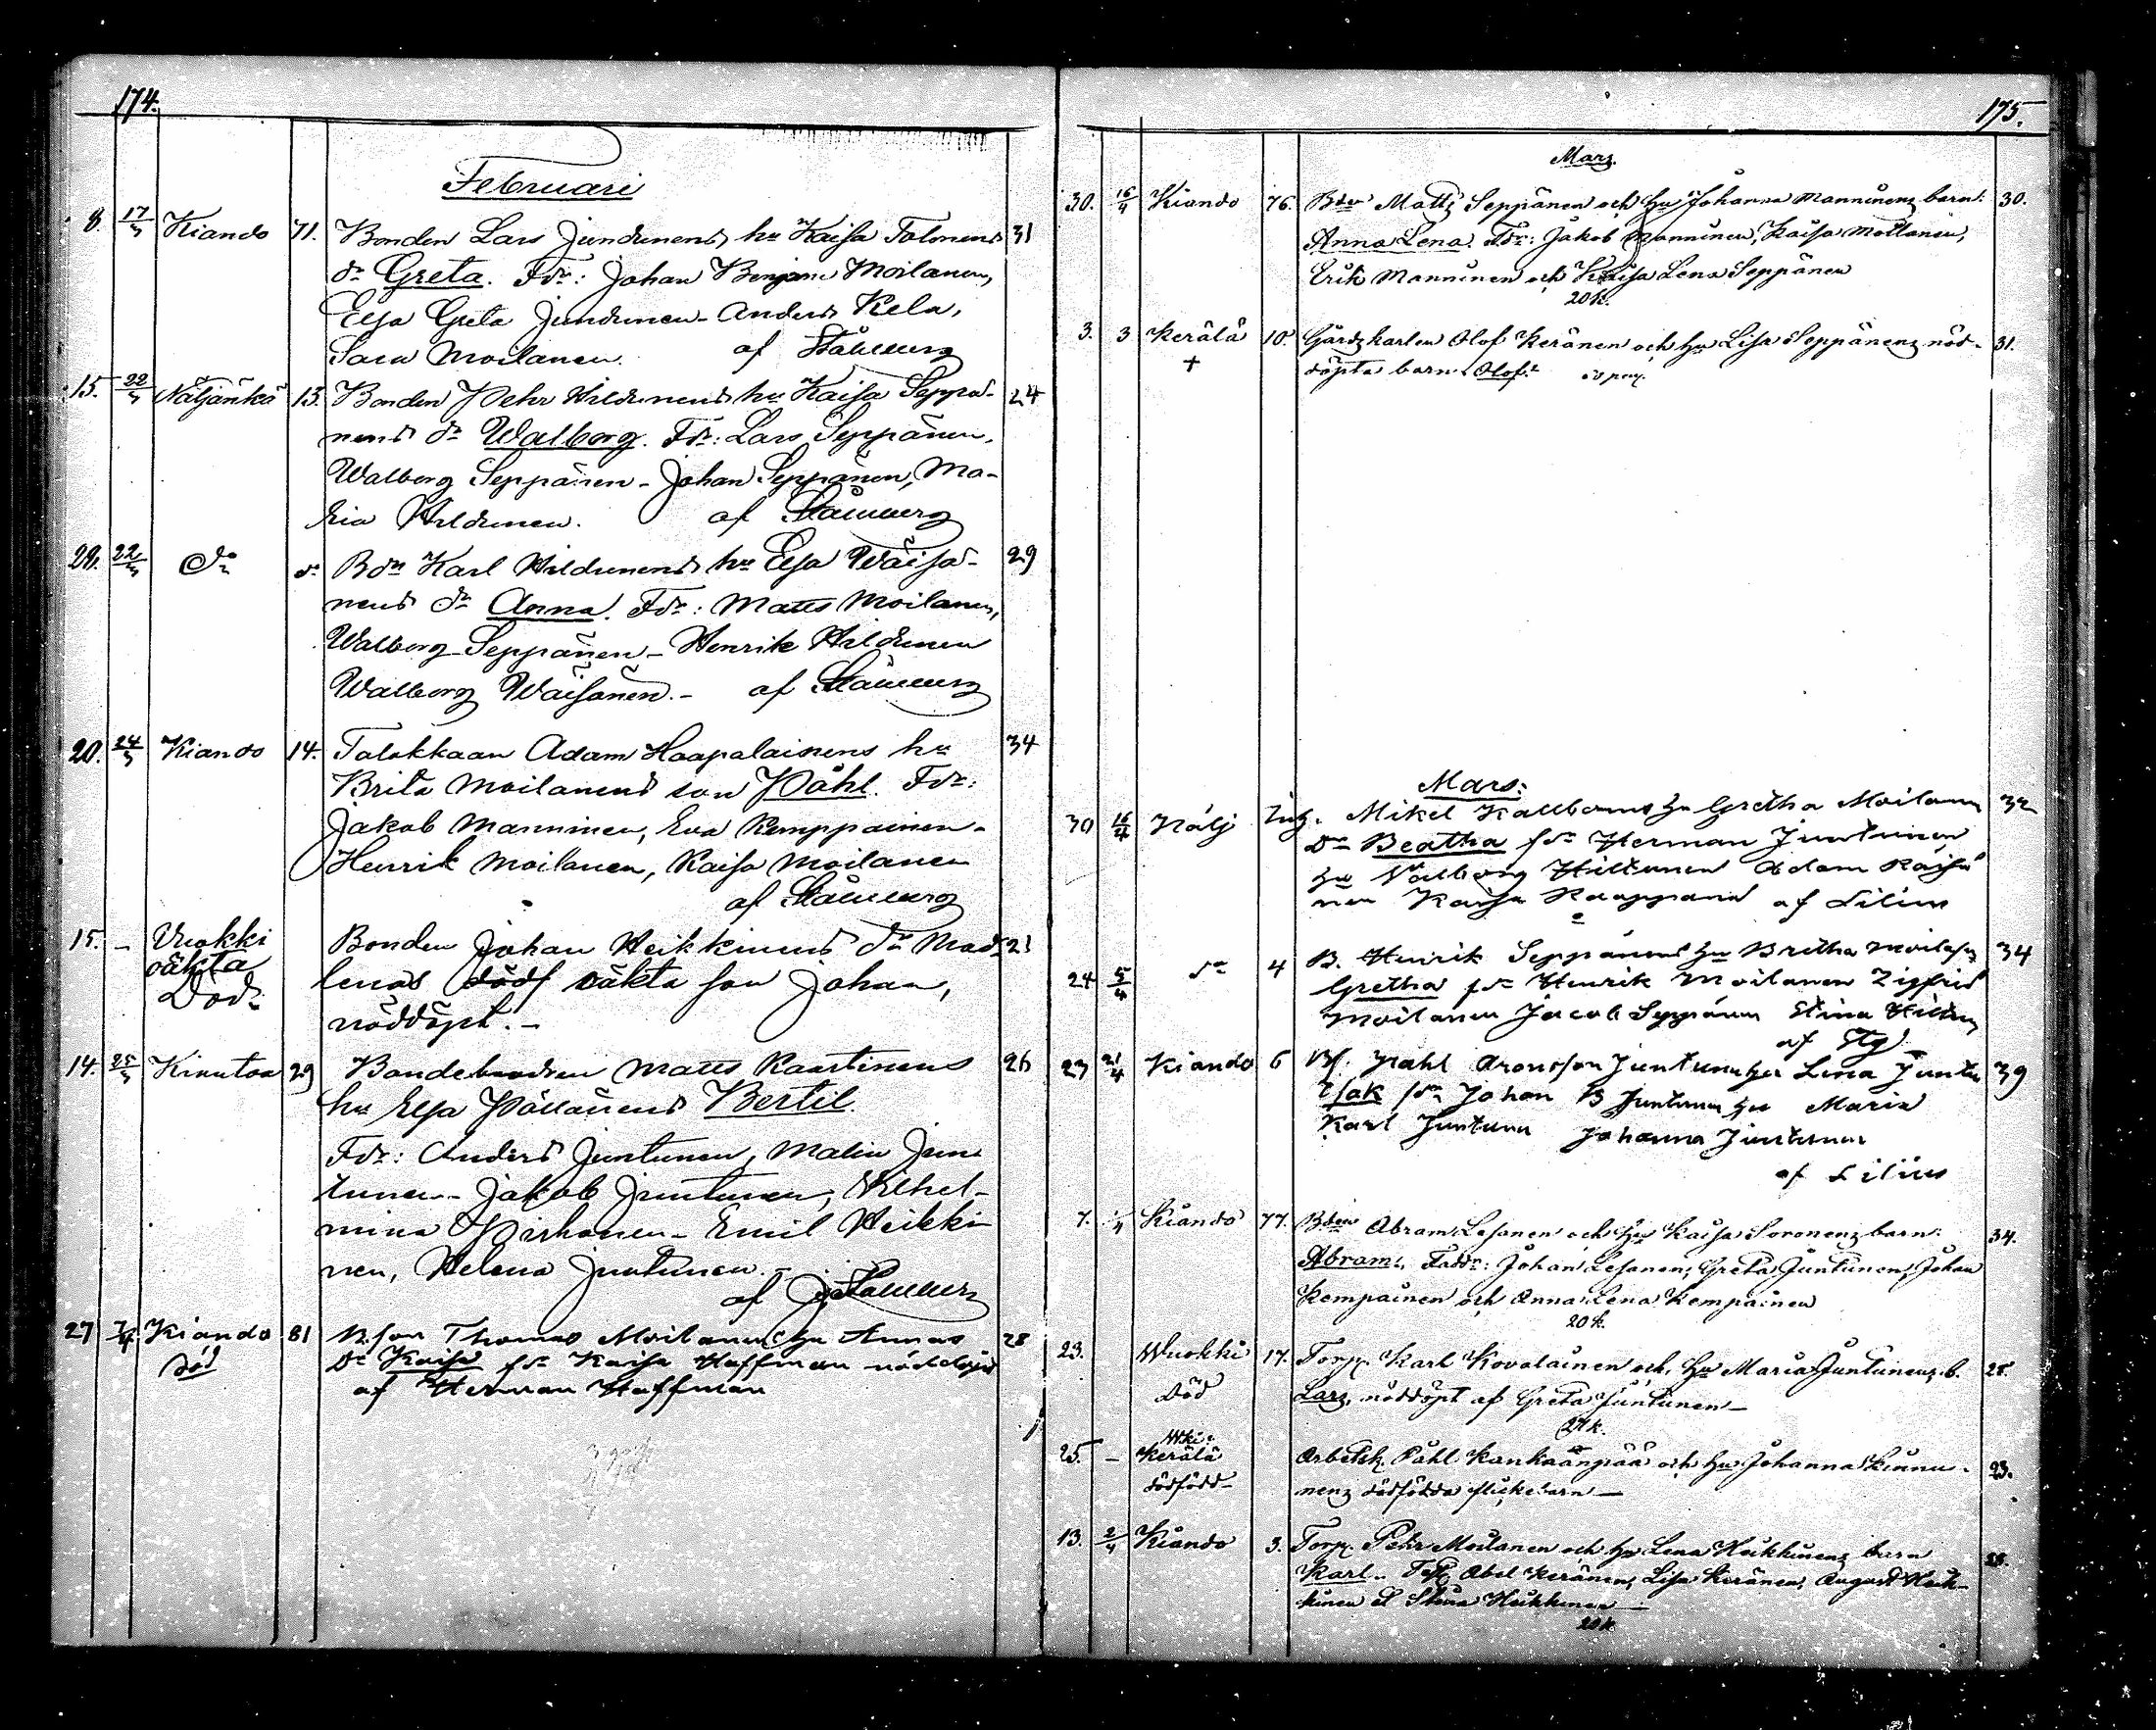 174.
Februari
8. 17/3 Kiando 71. Bonden Lars Juntunens hu Kaisa Tolonens 31
dr Greta. Fdr: Johan Benjam Moilanen,
Elsa Greta Juntunen - Anders Kela,
Sara Moilanen. af Ståhlberg
15. 22/3 Näljänkä 13. Bonden Pehr Hildunens hu Kaisa Seppä- 24
nens dr Walborg. Fdr: Lars Seppänen,
Walborg Seppänen - Johan Seppänen, Ma-
ria Hildunen. af Ståhlberg
29. 22/3 do do Bdn Karl Hildunens hu Elsa Wäisä- 29
nens dr Anna. Fdr: Matts Moilanen,
Walborg Seppänen - Henrik Hildunen
Walborg Wäisänen. - af Ståhlberg
20. 24/3 Kiando 14. Talokkaan Adam Haapalainens hu 34
Brita Moilanens son Påhl. Fdr:
Jakob Manninen, Eva Kemppainen -
Henrik Moilanen, Kaisa Moilanen
af Ståhlberg
15. - Vuokki Bonden Johan Heikkinens dr Mada 21
oäkta lenas oäkta son Johan,
Död. nöddöpt. -
14. 25/3 Kinutaa 29 Matts Raatinens 26
hu Elsa Pöllänens Bertil.
Fdr: Anders Juntunen, Malin Jun-
tunen - Jakob Juntunen, Wilhel-
mina Pirhonen - Emil Heikki-
nen, Helena Juntunen. -
af Ståhlberg
27 7/4 Kiando 81 B.son Thomas Moilanens hu Annas 28
död dr Kaisa fdr Kaisa Haffman nöddöpt
af Herman Haffman
175.
Mars.
30. 16/4 Kiando 76. Bden Matts Seppänen och hu Johanna Manninens barn: 30.
Anna Lena. Fdr: Jakob Manninen, Kaisa Moilanen,
Erik Manninen och Kaisa Lena Seppänen
20 k.
3. 3 Kerälä 10. Gårdskarlen Olof Keränen och hu Lisa Seppänens nöd- 31.
+ döpta barn: Olof.
Mars:
30 16/4 Nälj Mikel Kallbergs hu Gretha Moilanen 32
Dr Beatha fdr Herman Juntunen
hu Valborg Hiltunen Adam
nen Kaisa af Lilius
24 5/4 do 4 B. Henrik Seppänens hu Bretha Moilasen 34
Gretha fdr Henrik Moilanen Zigfrid
Moilanen Jacob Seppänen Stina Hiltun
af Stg
23 21/4 Kiando 6 Bf. Pahl Aronsson Juntunen hu Lena Juntu 39
Isak fdr Johan B Juntunen hu Maria
Karl Juntunen Johanna Juntunen
af Lilius
7. Kiando 77. Bden Abram Lesonen och hu Kaisa Soronens barn: 34.
Abram. Faddr: Johan Lesonen, Greta Juntunen, Johan
Kempainen och Anna Lena Kempainen
20 k.
23. Wuokki 17. Torp. Karl Kovalainen och hu Maria Juntunens b. 25.
Död Lars, nöddöpt af Greta Juntunen -
25. - Wki: Kerälä Arbetsk. Påhl Kankaanpää och hu Johanna Kinnu- 23.
dödfödd - nens dödfödda flickebarn -
13. 2/4 Kiando 3. Torp. Pehr Moilanen och hu Lena Heikkinens barn
Karl. Abel Keränen, Lisa Keränen, August Heik-
kinen & Stina Heikkinen -
20 k.